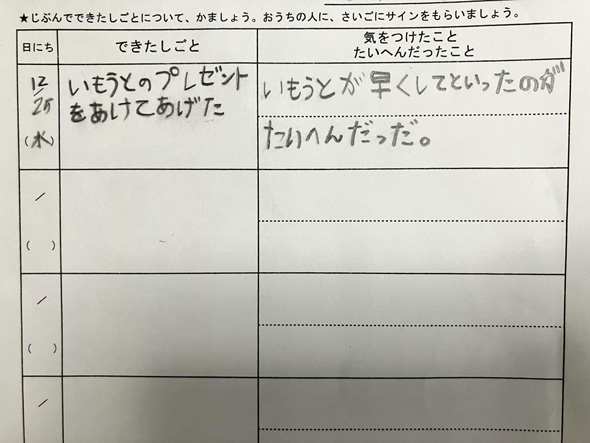 ★じぶんでできたしごとについて、かましょう。おうちの人に、さいごにサインをもらいましょう。
日にち
できたしごと
気をつけたこと
たいへんだったこと
12/25
(水)
いもうとのプレゼント
をあけてあげた
いもうとが早くしてといったのが
たいへんだっだ。
/
( )
/
( )
/